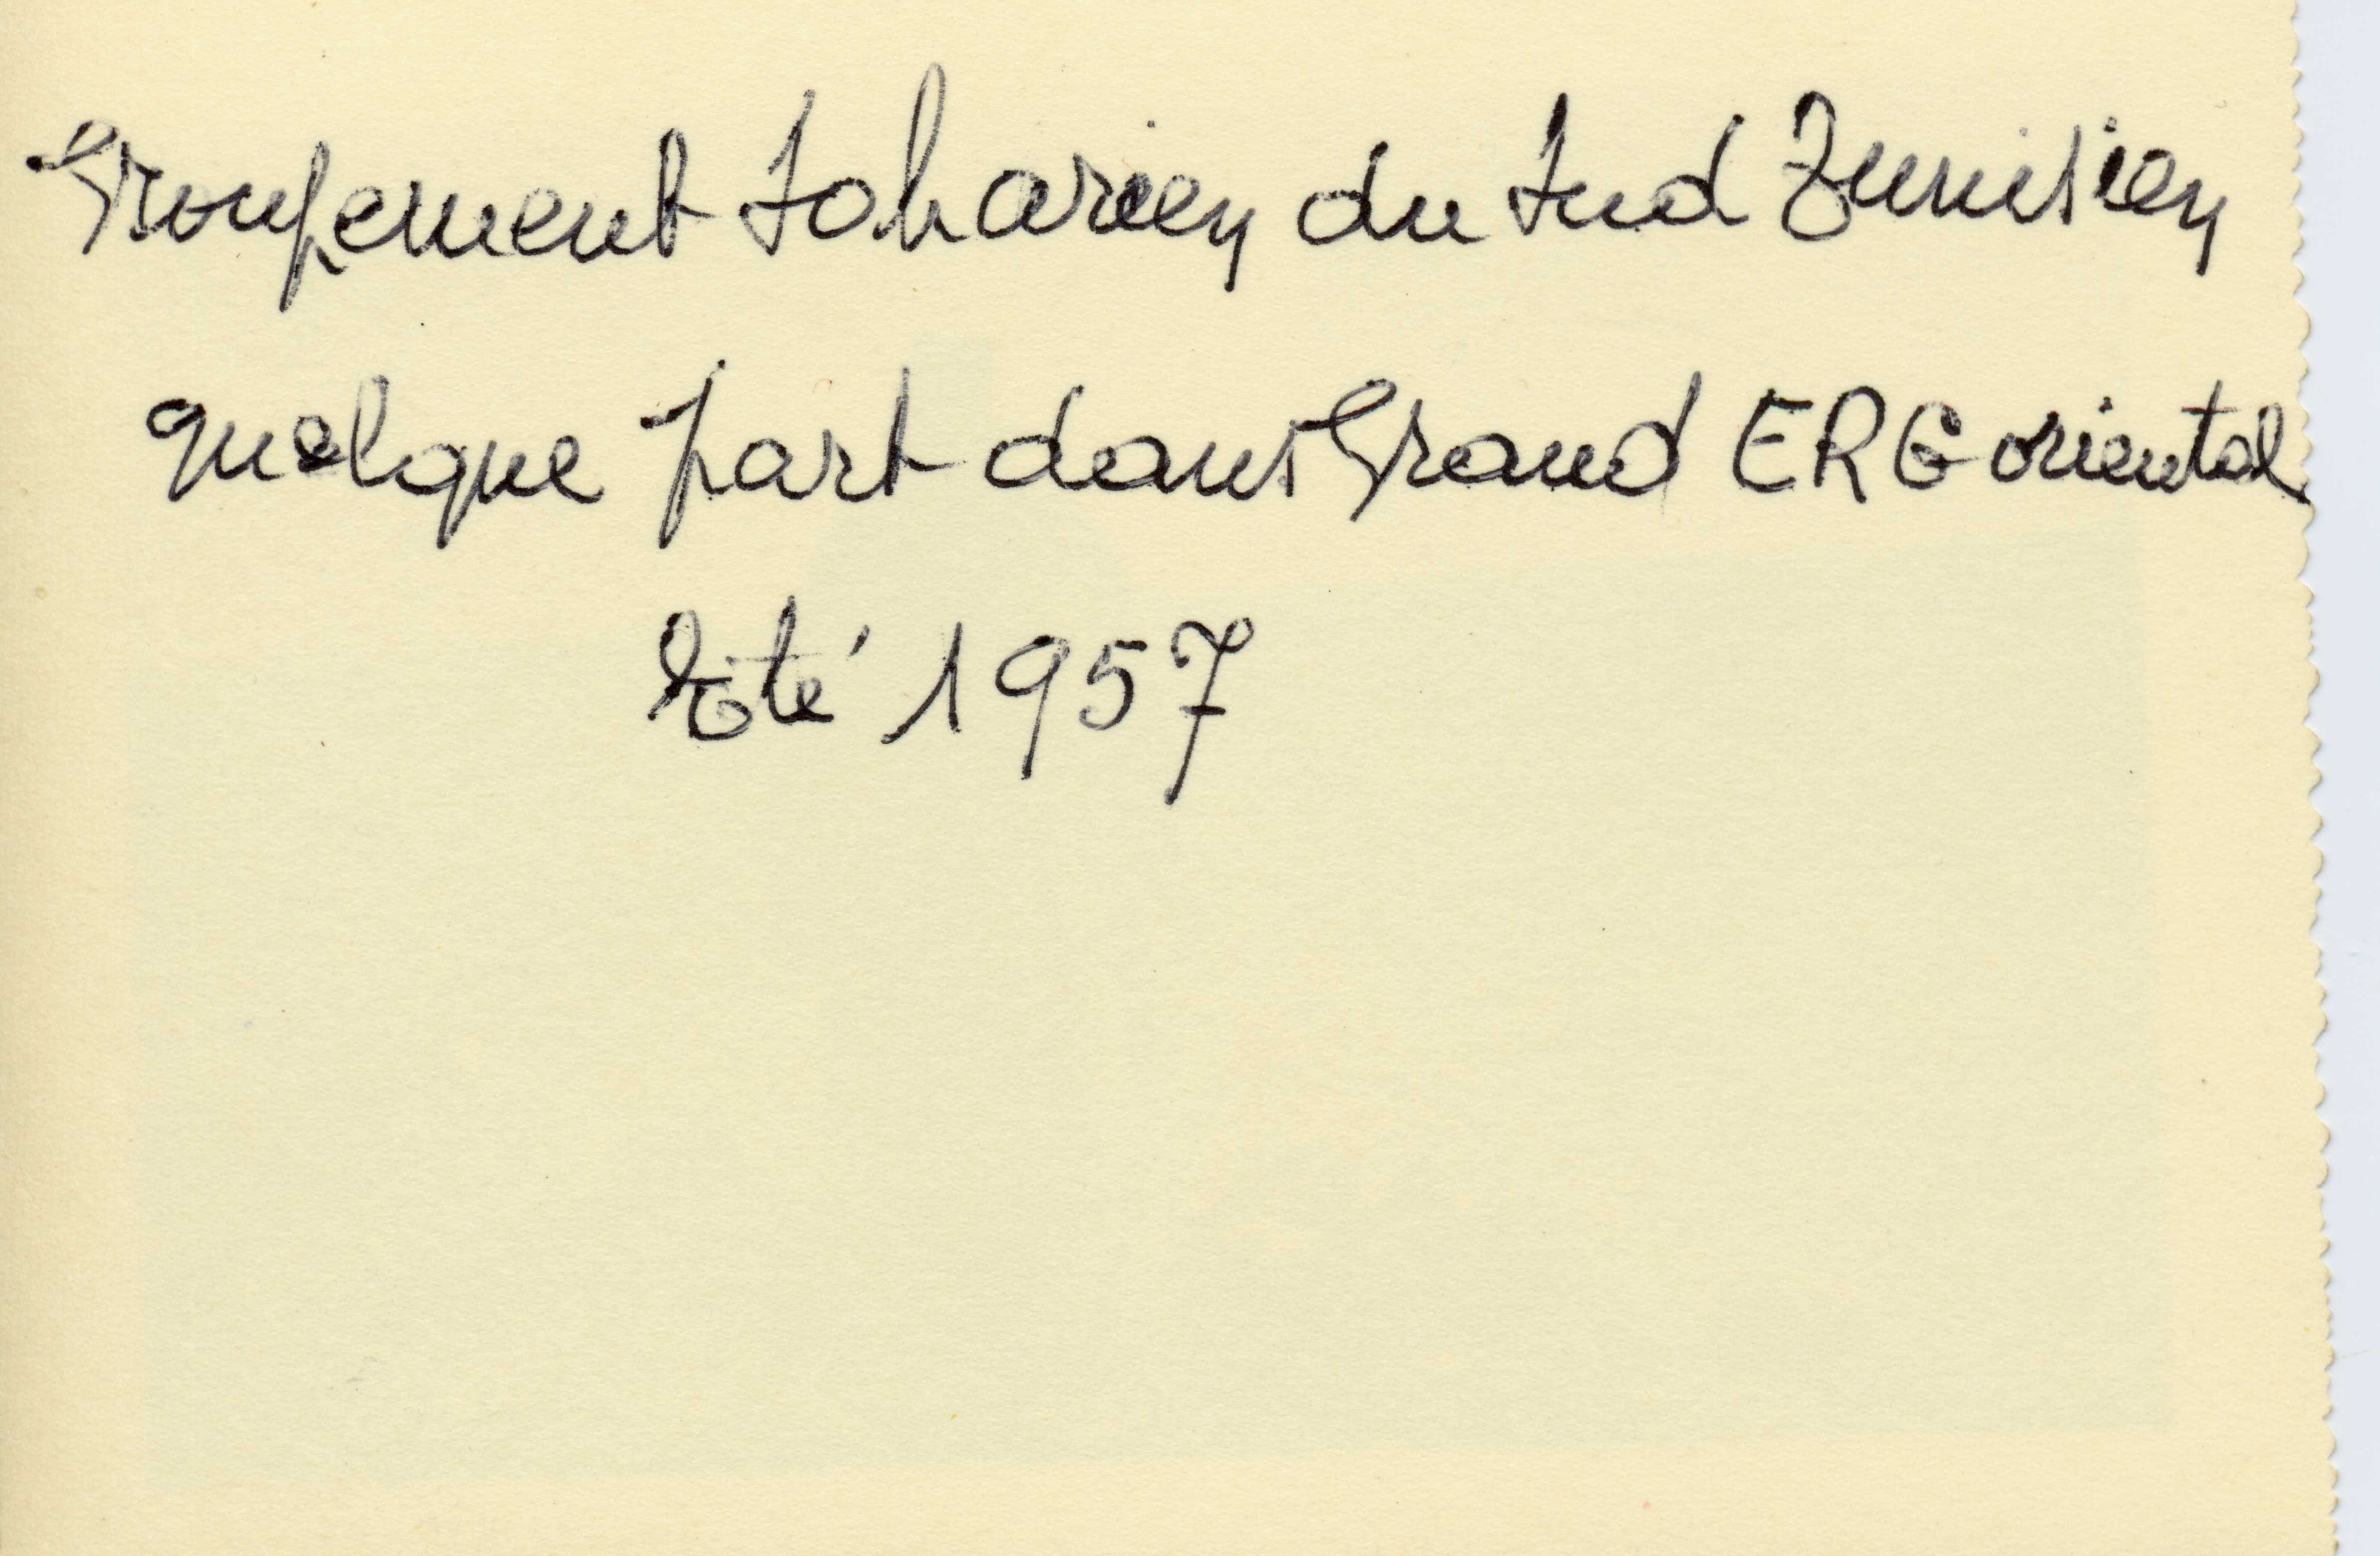 Groupement Saharien du Sud Tunisien
quelque part dans Grand ERG oriental
Eté 1957